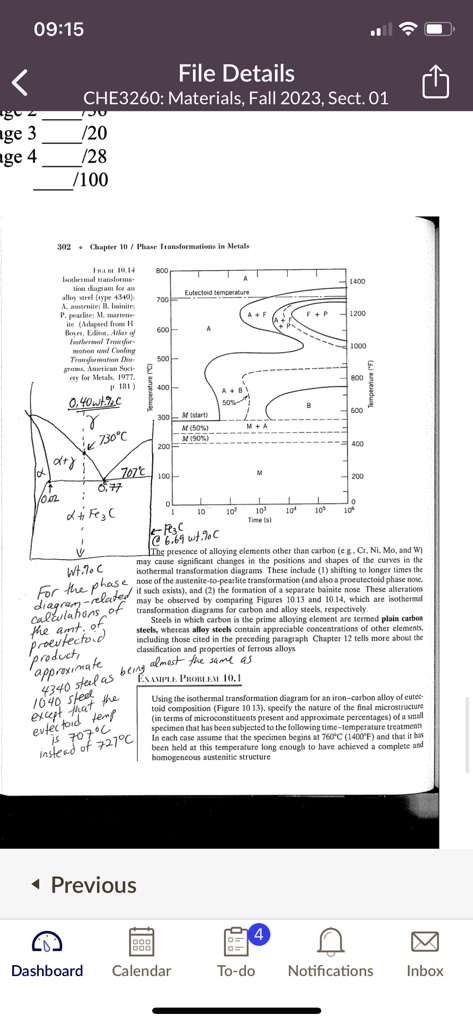 09:15
File Details
CHE3260: Materials, Fall 2023, Sect. 01
age 3 /20
age 4 /28
/100
302 • Chapter 10 / Phase Transformations in Metals
FIGURE 10.14
Isothermal transforma-
tion diagram for an
alloy steel (type 4340):
A, austenite; B, bainite;
P, pearlite; M, martens-
ite (Adapted from H
Boyer, Editor, Atlas of
Isothermal Transfor-
mation and Cooling
Transformation Dia-
grams, American Soci-
ety for Metals, 1977,
p 181)
800
700
600
500
400
300
200
100
0
Temperature (°C)
1400
1200
1000
800
600
400
200
0
Temperature (°F)
A
Eutectoid temperature
A + F
F + P
A + F
+ P
A
A + B
50%
B
M (start)
M (50%)
M + A
M (90%)
M
1 10 10² 10³ 10⁴ 10⁵ 10⁶
Time (s)
0.40 wt.% C
γ
730°C
α+γ
707°C
α
0.77
0.02
α + Fe₃C
Wt.% C
← Fe₃C
@ 6.69 wt.% C
For the phase
diagram-related
calculations of
the amt. of
proeutectoid
product,
approximate
4340 steel as being almost the same as
1040 steel
except that the
eutectoid temp
is 707°C
instead of 727°C
The presence of alloying elements other than carbon (e.g., Cr, Ni, Mo, and W)
may cause significant changes in the positions and shapes of the curves in the
isothermal transformation diagrams. These include (1) shifting to longer times the
nose of the austenite-to-pearlite transformation (and also a proeutectoid phase nose,
if such exists), and (2) the formation of a separate bainite nose These alterations
may be observed by comparing Figures 10.13 and 10.14, which are isothermal
transformation diagrams for carbon and alloy steels, respectively
Steels in which carbon is the prime alloying element are termed plain carbon
steels, whereas alloy steels contain appreciable concentrations of other elements,
including those cited in the preceding paragraph Chapter 12 tells more about the
classification and properties of ferrous alloys
EXAMPLE PROBLEM 10.1
Using the isothermal transformation diagram for an iron–carbon alloy of eutec-
toid composition (Figure 10 13), specify the nature of the final microstructure
(in terms of microconstituents present and approximate percentages) of a small
specimen that has been subjected to the following time–temperature treatments
In each case assume that the specimen begins at 760°C (1400°F) and that it has
been held at this temperature long enough to have achieved a complete and
homogeneous austenitic structure
Previous
4
Dashboard
Calendar
To-do
Notifications
Inbox